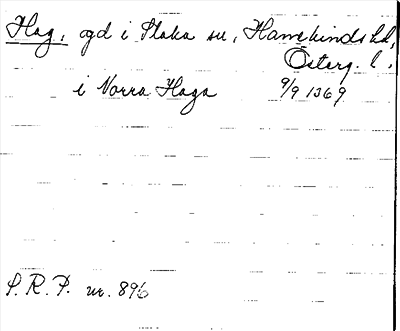 Hag, gd i Slaka sn, Hanekinds hd,
Österg. l.
i Norra Haga 9/9 1369
S.R.P. nr. 896